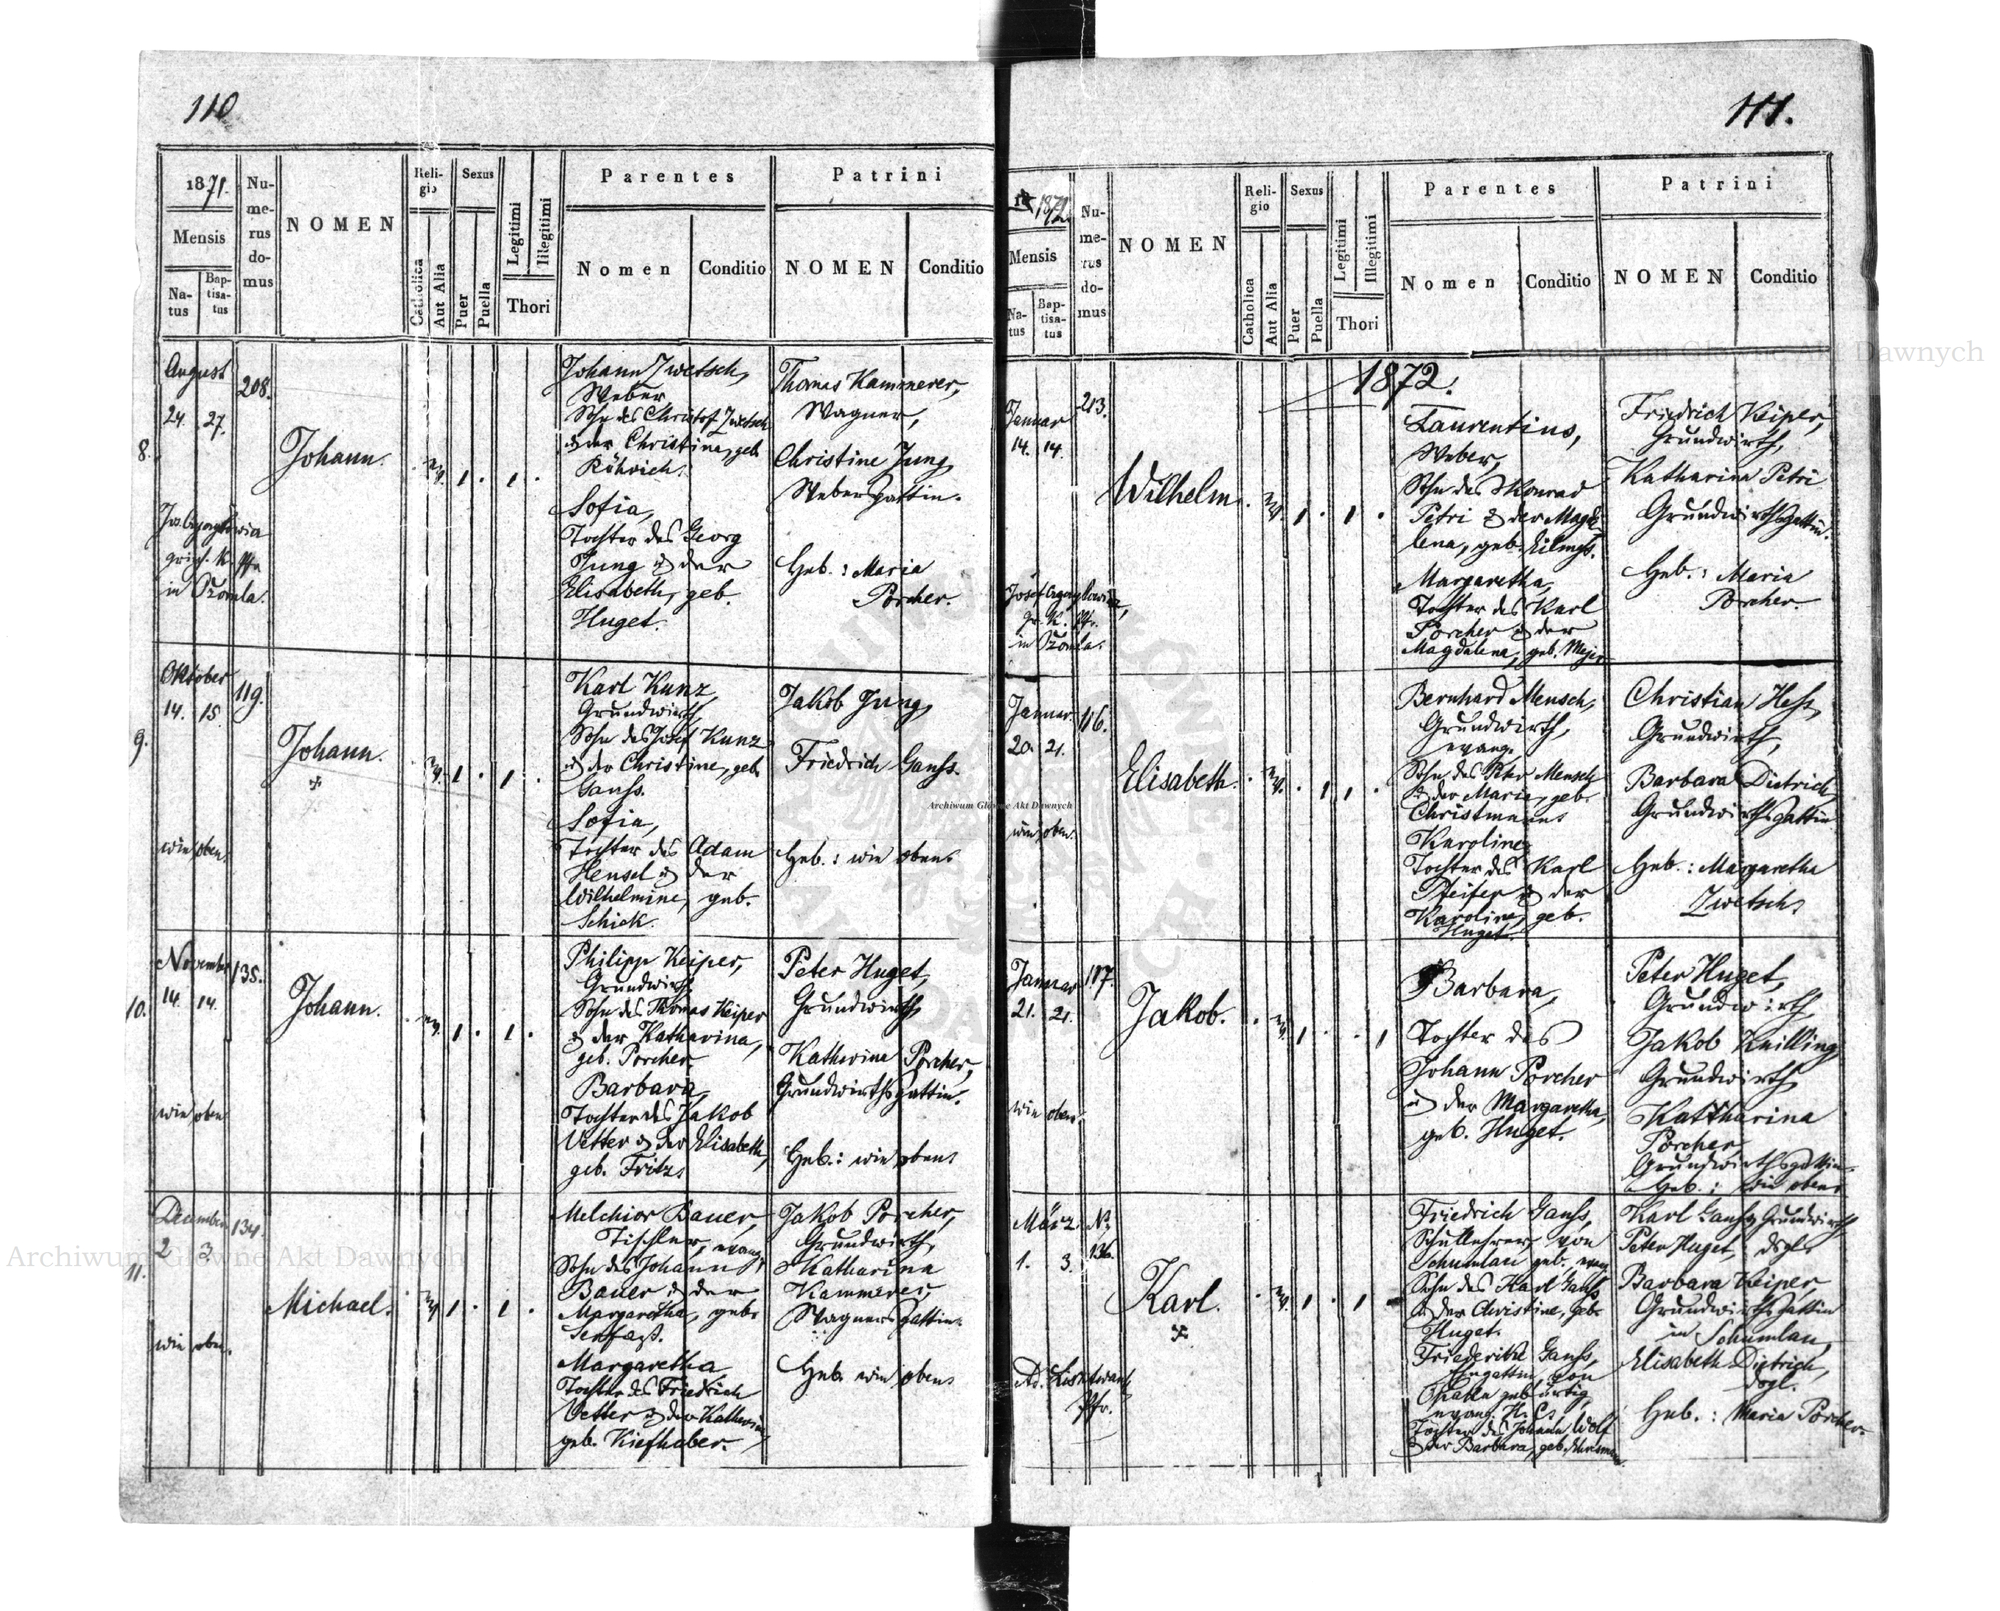 110
1871.
Mensis
Na-
tus
Bap-
tisa-
tus
Nu-
me-
rus
do-
mus
NOMEN
Reli-
gio
Catholica
Aut Alia
Sexus
Puer
Puella
Legitimi
Illegitimi
Thori
Parentes
Nomen
Conditio
Patrini
NOMEN
Conditio
8.
August
24. 27.
208.
in
Johann.
ev.
1 . 1 .
Johann Zwetsch,
Weber
Sohn des Christof Zwetsch
& der Christine, geb.
Röhrich.
Sofia,
Tochter des Georg
Jung & der
Elisabeth, geb.
Huget.
Thomas Kammerer,
Wagner,
Christine Jung,
Webersgattin.
Heb.: Maria
Porcher.
9.
Oktober
14. 15.
119.
wie oben.
Johann.
ev.
1 . 1 .
Karl Kunz,
Grundwirth,
Sohn des Josef Kunz
& der Christine, geb.
Ganss.
Sofia,
Tochter des Adam
Hensel & der
Wilhelmine, geb.
Schick.
Jakob Jung,
Friedrich Ganss.
Heb.: wie oben.
10.
November
14. 14.
135.
wie oben
Johann.
ev.
1 . 1 .
Philipp Keiper,
Grundwirth,
Sohn des Thomas Keiper
& der Katharina,
geb. Porcher.
Barbara,
Tochter des Jakob
Vetter & der Elisabeth,
geb. Fritz.
Peter Huget,
Grundwirth,
Katharina Porcher,
Grundwirthsgattin.
Heb.: wie oben.
11.
Dezember
2 3.
134.
wie oben.
Michael.
ev.
1 . 1 .
Melchior Bauer,
Tischler, evang.
Sohn des Johann
Bauer & der
Margaretha, geb.
Margaretha
Tochter des Friedrich
Vetter & der Katharina,
geb. Kiefhaber.
Jakob Porcher,
Grundwirth,
Katharina
Kammerer,
Wagnersgattin.
Heb. wie oben.
111.
1872.
Mensis
Na-
tus
Bap-
tisa-
tus
Nu-
me-
rus
do-
mus
NOMEN
Reli-
gio
Catholica
Aut Alia
Sexus
Puer
Puella
Legitimi
Illegitimi
Thori
Parentes
Nomen
Conditio
Patrini
NOMEN
Conditio
1872.
Januar
14. 14.
213.
Josef
in
Wilhelm.
ev.
1 . 1 .
Laurentius,
Weber,
Sohn des Konrad
Petri & der Magda-
lena, geb.
Margaretha,
Tochter des Karl
Porcher & der
Magdalena, geb. Mejer
Friedrich Keiper,
Grundwirth,
Katharina Petri
Grundwirthsgattin.
Heb.: Maria
Porcher.
Januar
20. 21.
116.
wie oben.
Elisabeth.
ev.
. 1 1 .
Bernhard Mensch,
Grundwirth,
evang.
Sohn des Peter Mensch
& der Maria, geb.
Christmann
Karoline,
Tochter des Karl
Pfeifer & der
Karoline, geb.
Huget.
Christian Hess,
Grundwirth,
Barbara Dietrich,
Grundwirthsgattin
Heb.: Margaretha
Zwetsch.
Januar
21. 21.
187.
wie oben.
Jakob.
ev.
1 . . 1
Barbara,
Tochter des
Johann Porcher
& der Margaretha,
geb. Huget.
Peter Huget,
Grundwirth,
Jakob Knilling
Grundwirth,
Kattharina
Porcher
Grundwirthsgattin.
Heb.: wie oben.
März
1. 3.
Nr.
136.
Pfr.
Karl.
ev.
1 . 1 .
Friedrich Ganss,
Schullehrer, von
Schumlau geb. evan
Sohn des Karl Ganss
& der Christine, geb.
Huget.
Friederike Ganss,
Ehegattin, von
gebürtig,
evang. H. C.
Tochter des Johann Wolf
& der Barbara, geb.
Karl Ganss, Grundwirth,
Peter Huget, dogl.
Barbara Keiper,
Grundwirthsgattin
in Schumlau,
Elisabeth Dietrich,
dogl.
Heb.: Maria Porcher.
Archiwum Główne Akt Dawnych
Archiwum Główne Akt Dawnych
Archiwum Główne Akt Dawnych